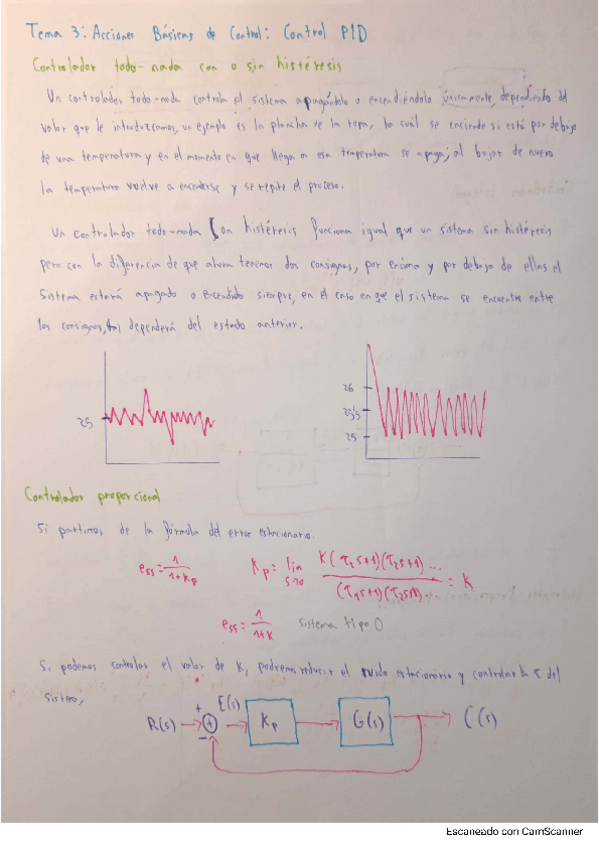 Tema 3: Acciones Básicas de Control: Control PID
Controlador todo-nada con o sin histéresis
Un controlador todo-nada controla el sistema apagándolo o encendiéndolo únicamente dependiendo del
valor que le introduzcamos, un ejemplo es la plancha de la ropa, la cuál se enciende si está por debajo
de una temperatura y en el momento en que llega a esa temperatura se apaga; al bajar de nuevo
la temperatura vuelve a encenderse y se repite el proceso.
Un controlador todo-nada con histéresis funciona igual que un sistema sin histéresis
pero con la diferencia de que ahora tenemos dos consignas, por encima y por debajo de ellas el
sistema estará apagado o encendido siempre, en el caso en que el sistema se encuentre entre
las consignas, dependerá del estado anterior.
25
26
25'5
25
Controlador proporcional
Si partimos de la fórmula del error estacionario.
ess = 1/(1+Kp) Kp = lim s→0 K(τ2s+1)(τ2s+1)... / (τ2s+1)(τ2s+1)... = K
ess = 1/(1+K) sistema tipo 0
Si podemos controlar el valor de K, podremos reducir el ruido estacionario y controlar la τ del
sistema;
R(s) + - E(s) Kp G(s) C(s)
Escaneado con CamScanner